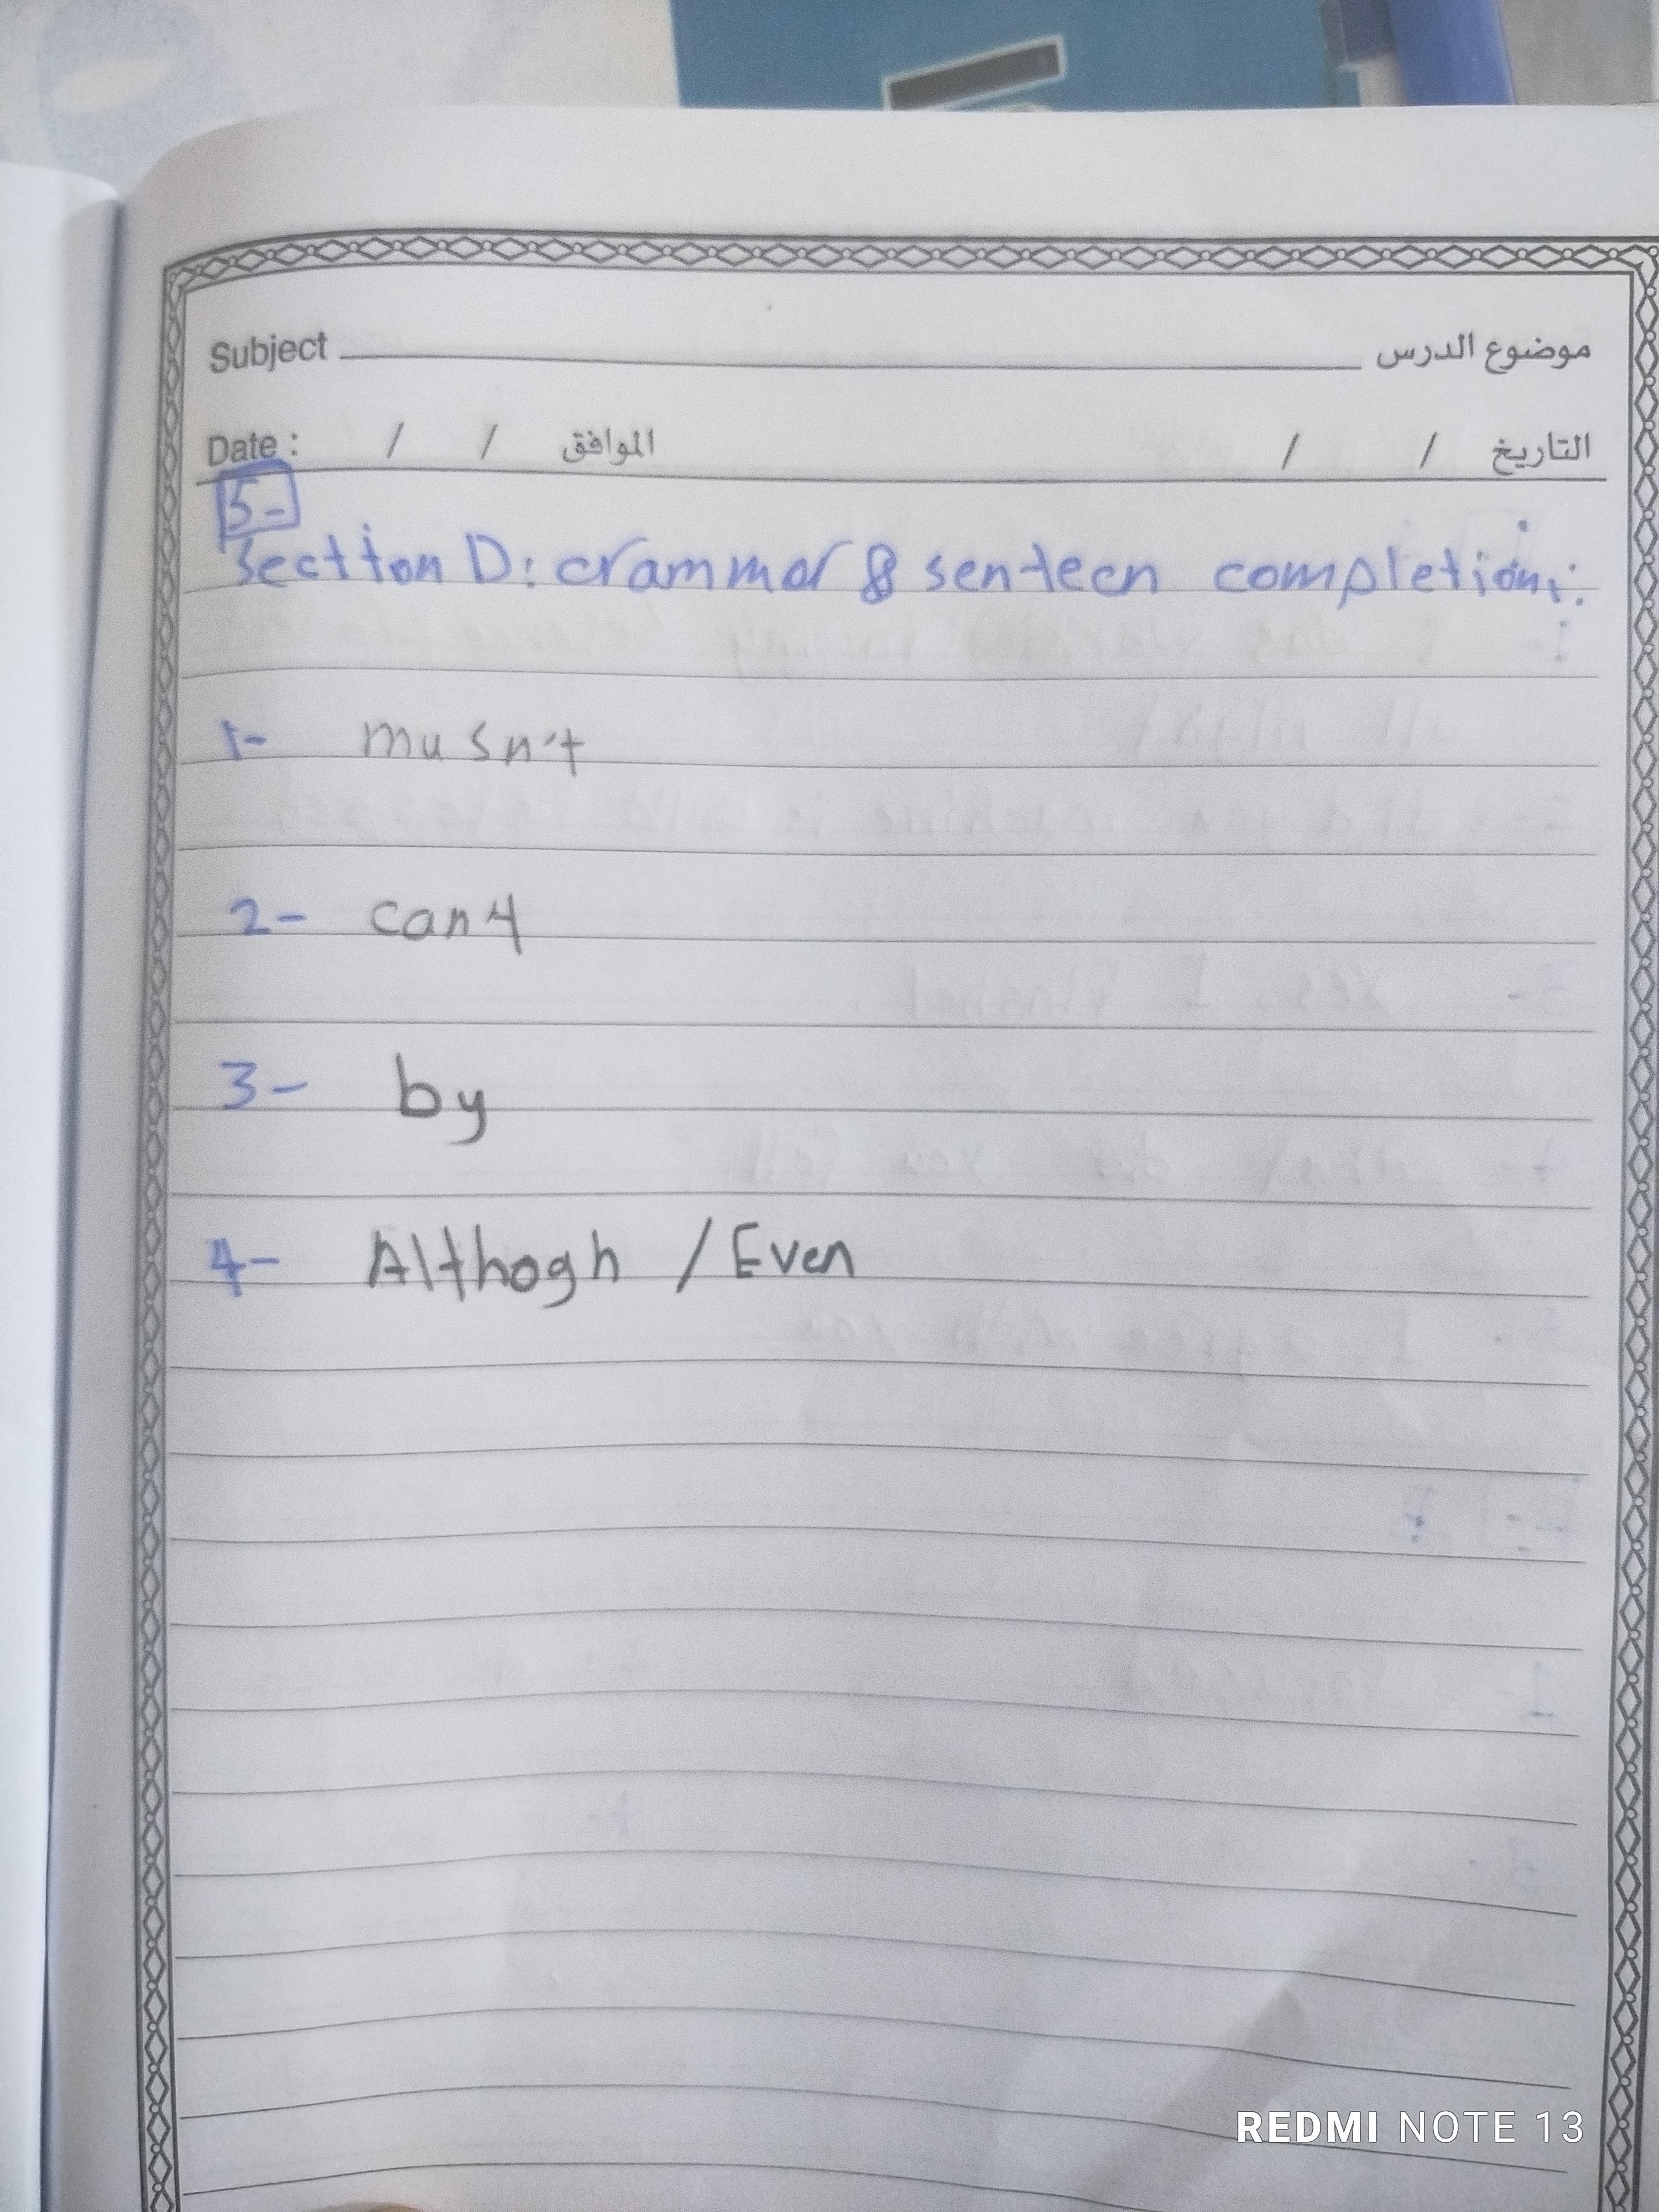 Subject موضوع الدرس
Date : / / الموافق / / التاريخ
5-
Section D: crammar & senteen completion:
1- musn't
2- can4
3- by
4- Althogh / Even
REDMI NOTE 13